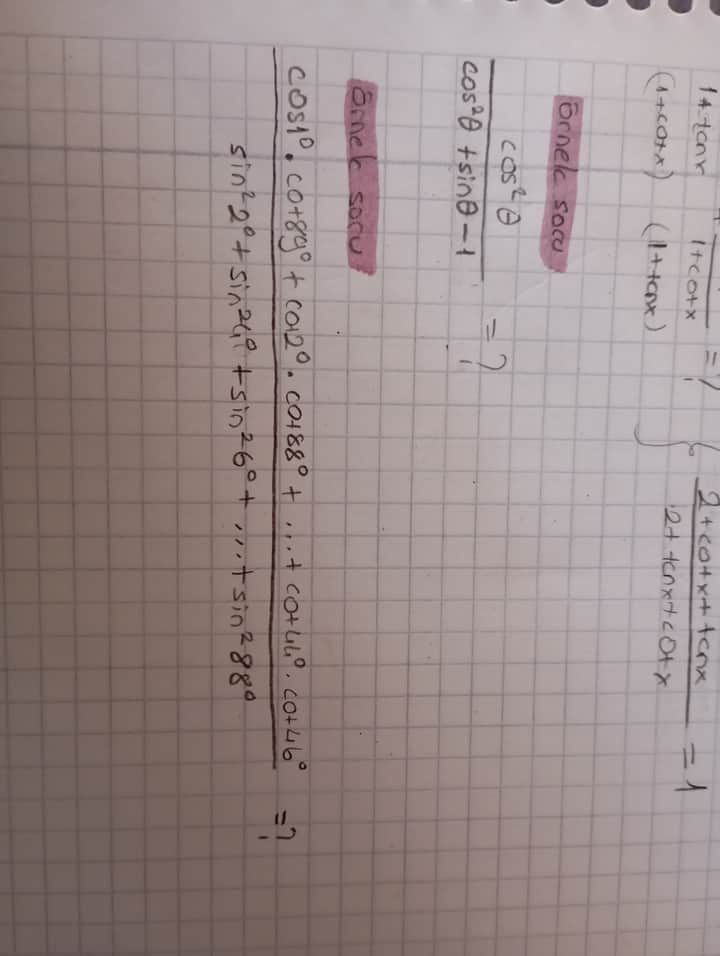 2+cotx+tanx
1+tanx + 1+cotx =? = 1
2+tanx+cotx
(1+cotx) (1+tanx)
Örnek soru
cos²θ
=?
cos²θ+sinθ-1
Örnek soru
cot1°.cot89°+cot2°.cot88°+...+cot44°.cot46°
=?
sin²2°+sin²4°+sin²6°+...+sin²88°